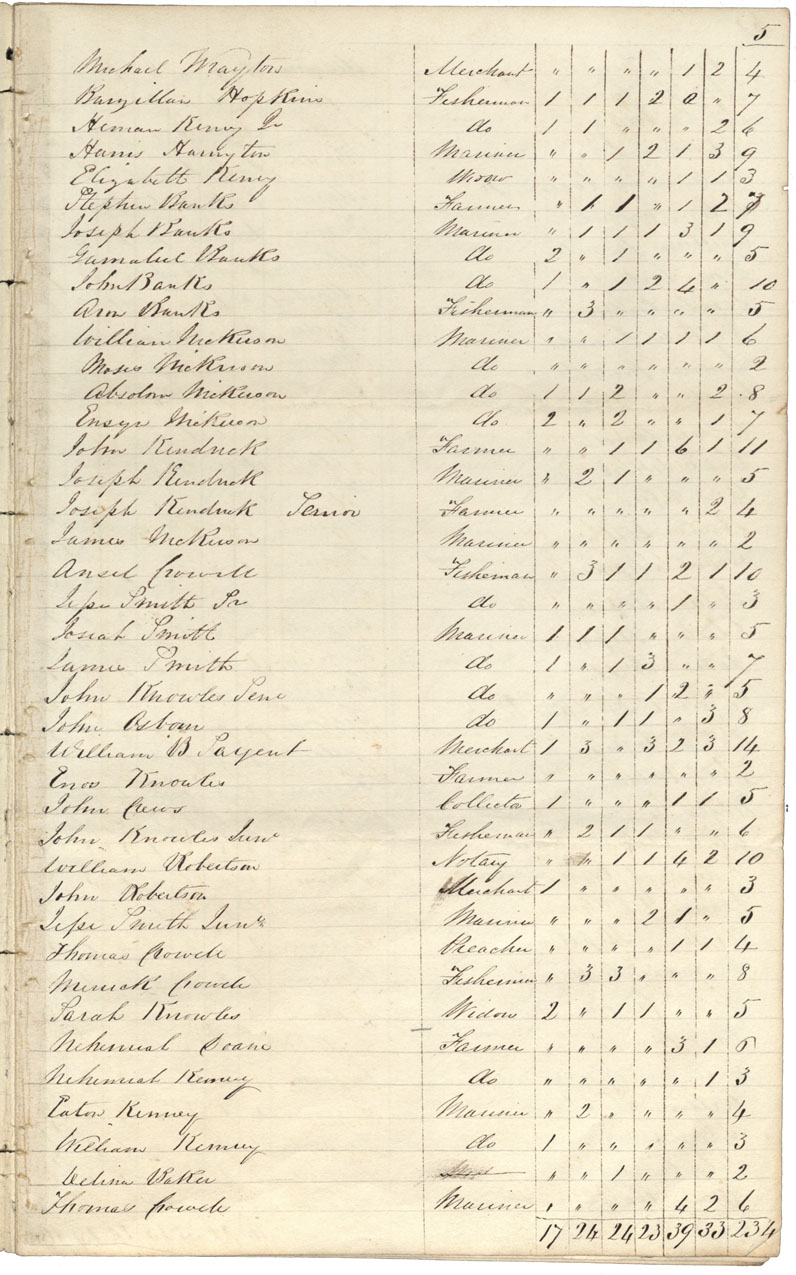 5
Michael Wrayton Merchant " " " " 1 2 4
Barzillai Hopkins Fisherman 1 1 1 2 0 " 7
Heman Kenny Jr do 1 1 " " " 2 6
Harris Harington Mariner " " 1 2 1 3 9
Elizabeth Keney Widow " " " " 1 1 3
Stephen Banks Farmer " 1 1 " 1 2
Joseph Banks Mariner " 1 1 1 3 1 9
Gamaliel Banks do 2 " 1 " " " 5
John Banks do 1 " 1 2 4 " 10
Aron Banks Fisherman " 3 " " " " 5
William Nickerson Mariner " " 1 1 1 1 6
Moses Nickerson do " " " " " " 2
Absolom Nickerson do 1 1 2 " " 2 8
Ensyn Nickerson do 2 " 2 " " 1 7
John Kendrick Farmer " " 1 1 6 1 11
Joseph Kendrick Mariner " 2 1 " " " 5
Joseph Kendrick Senior Farmer " " " " " 2 4
James Nickerson Mariner " " " " " " 2
Ansel Crowell Fisheman " 3 1 1 2 1 10
Jesse Smith Sr do " " " " 1 " 3
Josiah Smith Mariner 1 1 1 " " " 5
James Smith do 1 " 1 3 " " 7
John Knowles Sene do " " " 1 2 " 5
John Osborn do 1 " 1 1 " 3 8
William B Sargent Merchant 1 3 " 3 2 3 14
Enos Knowles Farmer " " " " " " 2
John Crews Collector 1 " " " 1 1 5
John Knowles Junr Fisheman " 2 1 1 " " 6
William Robertson Notary " " 1 1 4 2 10
John Robertson Merchant 1 " " " " " 3
Jesse Smith Junr Mariner " " " 2 1 " 5
Thomas Crowell Preacher " " " " 1 1 4
Merrick Crowell Fisheman " 3 3 " " " 8
Sarah Knowles Widow 2 " 1 1 " " 5
Nehemiah Doane Farmer " " " " 3 1 6
Nehemiah Kenney do " " " " " 1 3
Eaton Kinney Mariner " 2 " " " " 4
William Kenney do 1 " " " " " 3
Delina Baker " " 1 " " " 2
Thomas Crowell Mariner " " " " 4 2 6
17 24 24 23 39 33 234